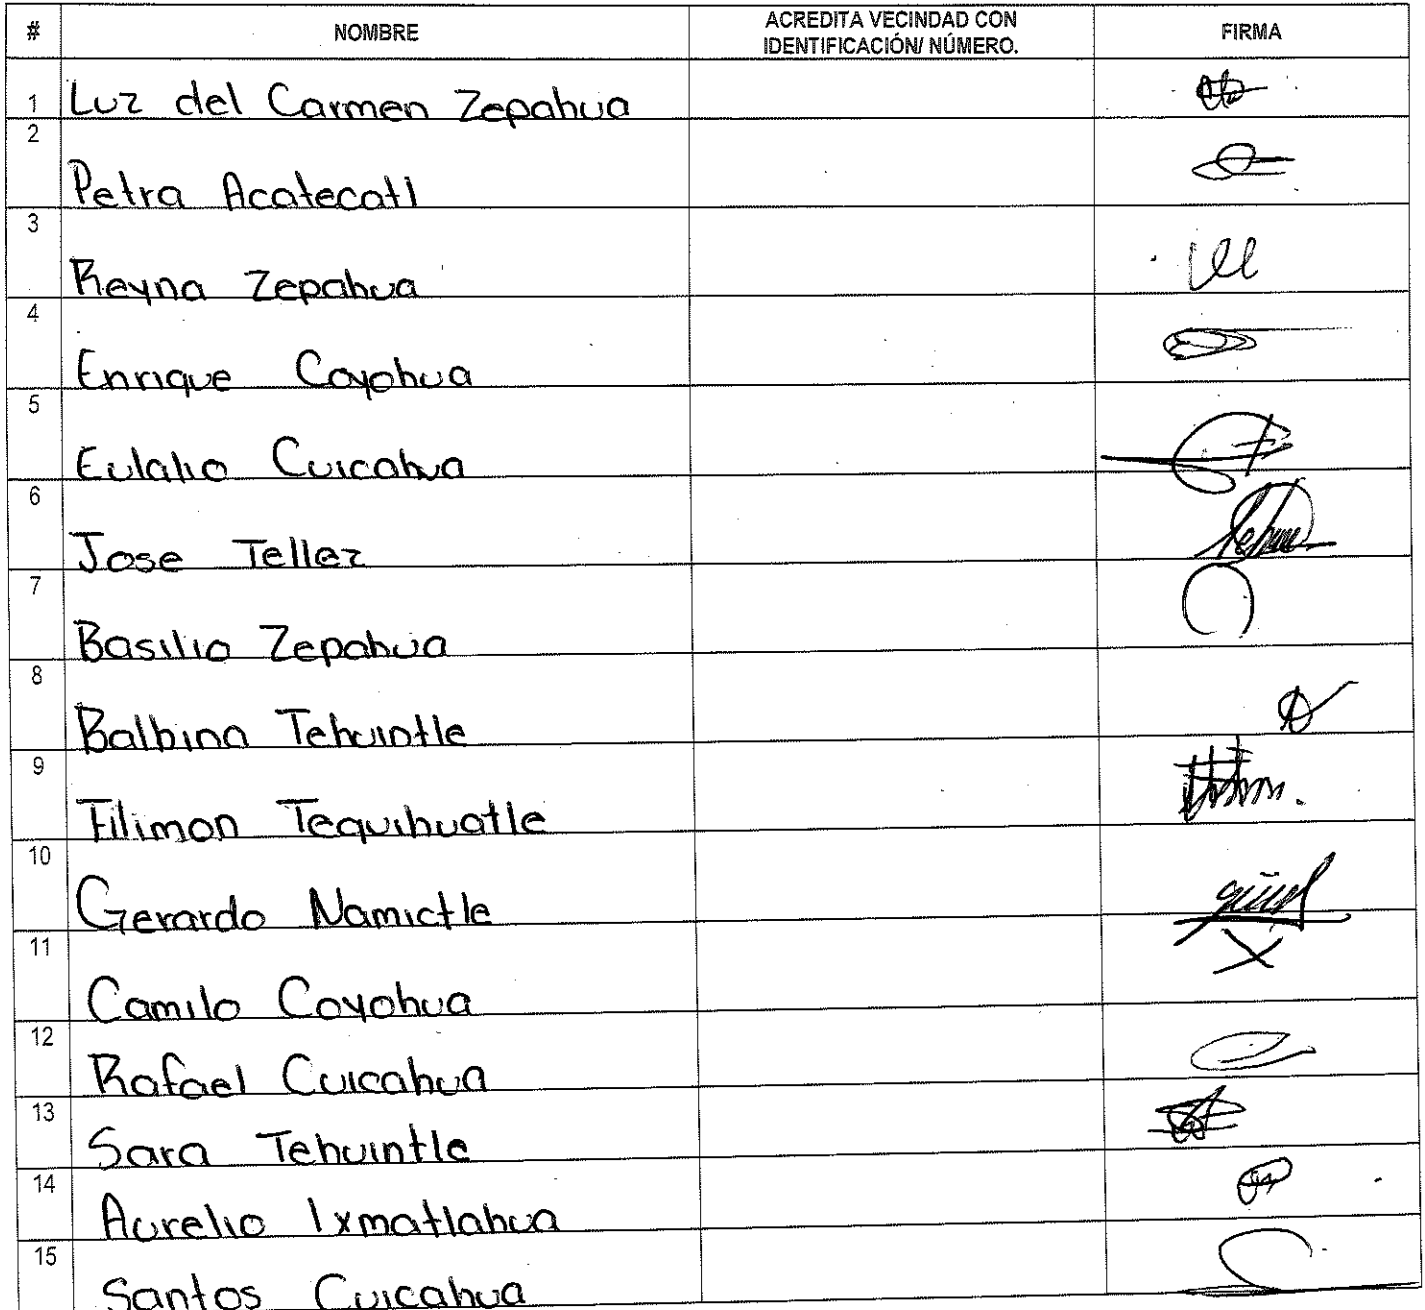 # NOMBRE ACREDITA VECINDAD CON IDENTIFICACIÓN/ NÚMERO. FIRMA
1 Luz del Carmen Zepahua
2 Petra Acatecatl
3 Reyna Zepahua
4 Enrique Coyohua
5 Eulalio Cuicahua
6 Jose Tellez
7 Basilio Zepahua
8 Balbina Tehuintle
9 Filimon Tequihuatle
10 Gerardo Namictle
11 Camilo Coyohua X
12 Rafael Cuicahua
13 Sara Tehuintle
14 Aurelio Ixmatlahua
15 Santos Cuicahua